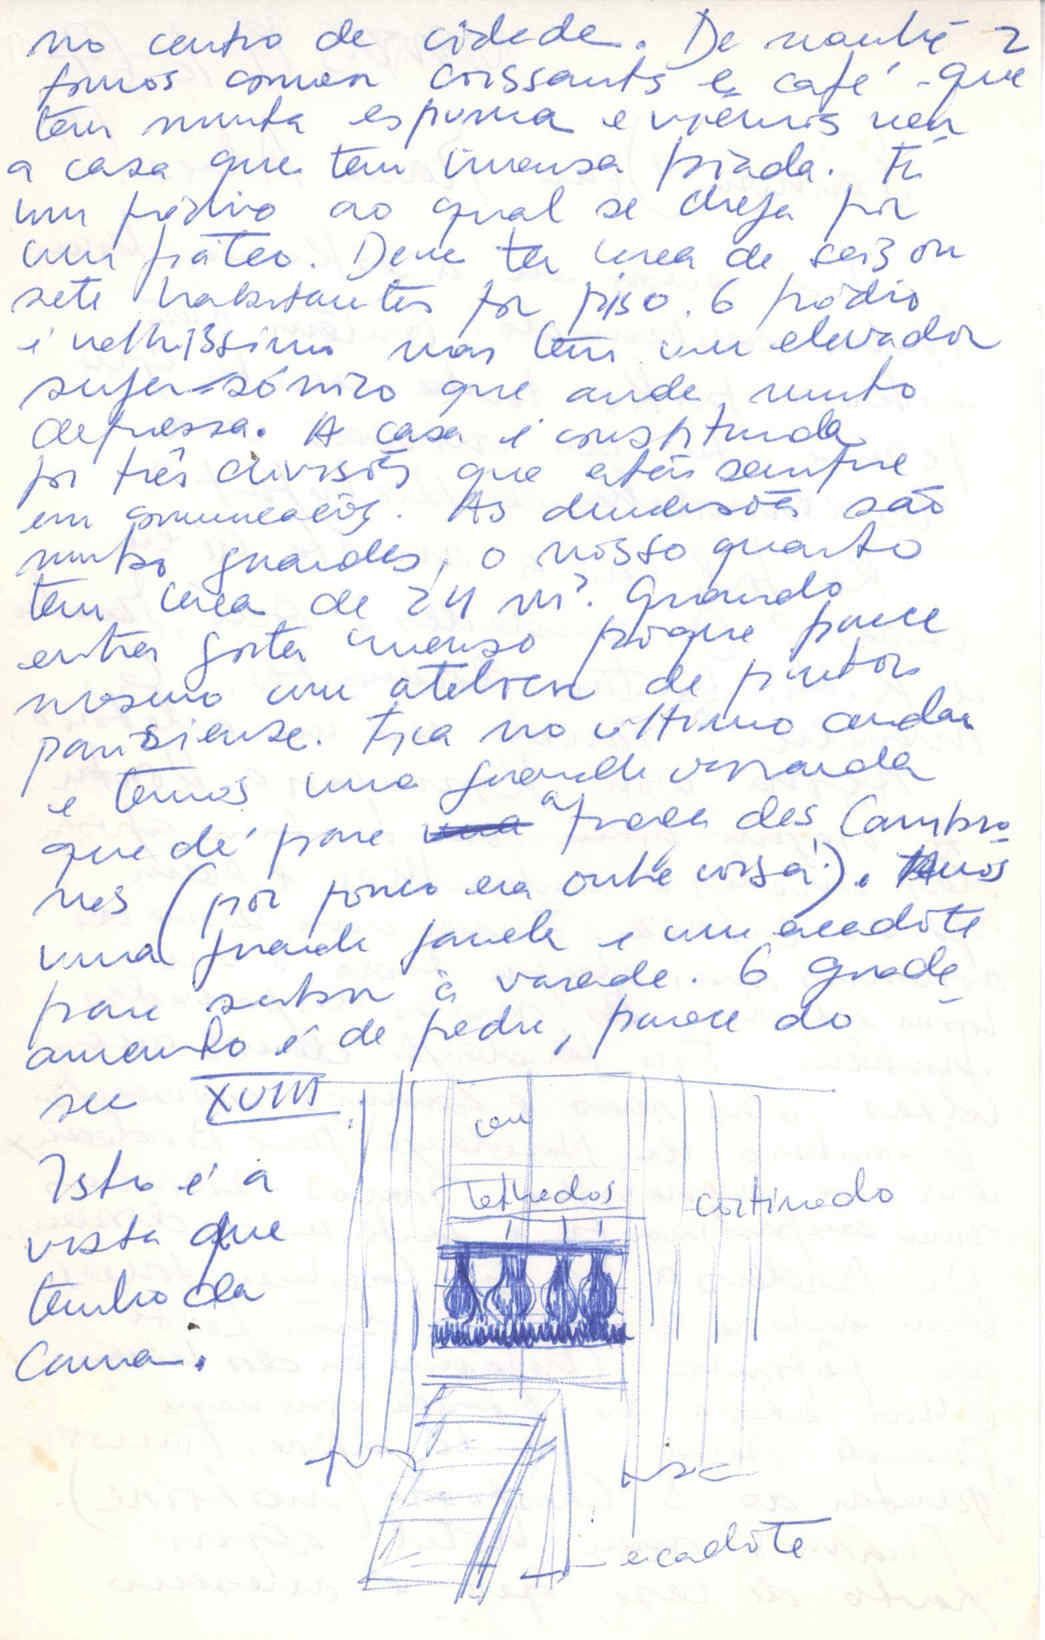 no centro de cidade. De manhã
fomos comer croissants e café que
tem muita espuma e viémos ver
a casa que tem imensa piada. É
um prédio ao qual se chega por
um páteo. Deve ter cerca de seis ou
sete habitantes por piso. O prédio
é velhissimo mas tem um elevador
super-sónico que anda muito
depressa. A casa é constituida
por três divisões que estão sempre
em comunicação. As dimensões são
muito grandes, o nosso quarto
tem cerca de 24 m². Quando
entrei gostei imenso porque parece
mesmo um atelier de pintor
parisiense. Fica no ultimo andar
e temos uma grande varanda
que dá para a praça des Cambro
nes (por pouco era outra coisa!). Temos
uma grande janela e um escadote
para subir à varanda. O grade
amento é de pedra, parece do
sec XVIII.
Isto é a
vista que
tenho da
cama.
ceu
Telhados
cortinado
escadote